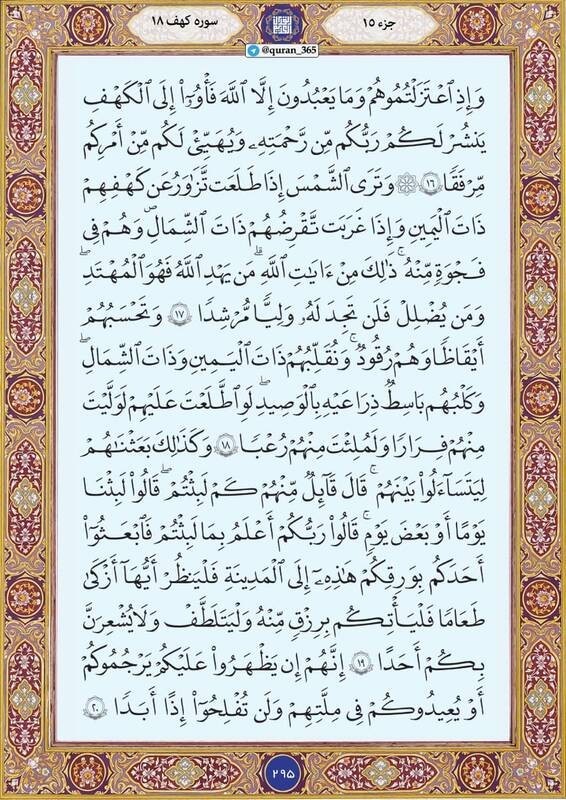 سوره کهف ۱۸
جزء ۱۵
@quran_365
وَإِذِ ٱعۡتَزَلۡتُمُوهُمۡ وَمَا يَعۡبُدُونَ إِلَّا ٱللَّهَ فَأۡوُۥٓاْ إِلَى ٱلۡكَهۡفِ
يَنشُرۡ لَكُمۡ رَبُّكُم مِّن رَّحۡمَتِهِۦ وَيُهَيِّئۡ لَكُم مِّنۡ أَمۡرِكُم
مِّرۡفَقٗا ۝١٦ ۞ وَتَرَى ٱلشَّمۡسَ إِذَا طَلَعَت تَّزَٰوَرُ عَن كَهۡفِهِمۡ
ذَاتَ ٱلۡيَمِينِ وَإِذَا غَرَبَت تَّقۡرِضُهُمۡ ذَاتَ ٱلشِّمَالِ وَهُمۡ فِي
فَجۡوَةٖ مِّنۡهُۚ ذَٰلِكَ مِنۡ ءَايَٰتِ ٱللَّهِۗ مَن يَهۡدِ ٱللَّهُ فَهُوَ ٱلۡمُهۡتَدِۖ
وَمَن يُضۡلِلۡ فَلَن تَجِدَ لَهُۥ وَلِيّٗا مُّرۡشِدٗا ۝١٧ وَتَحۡسَبُهُمۡ
أَيۡقَاظٗا وَهُمۡ رُقُودٞۚ وَنُقَلِّبُهُمۡ ذَاتَ ٱلۡيَمِينِ وَذَاتَ ٱلشِّمَالِۖ
وَكَلۡبُهُم بَٰسِطٞ ذِرَاعَيۡهِ بِٱلۡوَصِيدِۚ لَوِ ٱطَّلَعۡتَ عَلَيۡهِمۡ لَوَلَّيۡتَ
مِنۡهُمۡ فِرَارٗا وَلَمُلِئۡتَ مِنۡهُمۡ رُعۡبٗا ۝١٨ وَكَذَٰلِكَ بَعَثۡنَٰهُمۡ
لِيَتَسَآءَلُواْ بَيۡنَهُمۡۚ قَالَ قَآئِلٞ مِّنۡهُمۡ كَمۡ لَبِثۡتُمۡۖ قَالُواْ لَبِثۡنَا
يَوۡمًا أَوۡ بَعۡضَ يَوۡمٖۚ قَالُواْ رَبُّكُمۡ أَعۡلَمُ بِمَا لَبِثۡتُمۡ فَٱبۡعَثُوٓاْ
أَحَدَكُم بِوَرِقِكُمۡ هَٰذِهِۦٓ إِلَى ٱلۡمَدِينَةِ فَلۡيَنظُرۡ أَيُّهَآ أَزۡكَىٰ
طَعَامٗا فَلۡيَأۡتِكُم بِرِزۡقٖ مِّنۡهُ وَلۡيَتَلَطَّفۡ وَلَا يُشۡعِرَنَّ
بِكُمۡ أَحَدًا ۝١٩ إِنَّهُمۡ إِن يَظۡهَرُواْ عَلَيۡكُمۡ يَرۡجُمُوكُمۡ
أَوۡ يُعِيدُوكُمۡ فِي مِلَّتِهِمۡ وَلَن تُفۡلِحُوٓاْ إِذًا أَبَدٗا ۝٢٠
۲۹۵